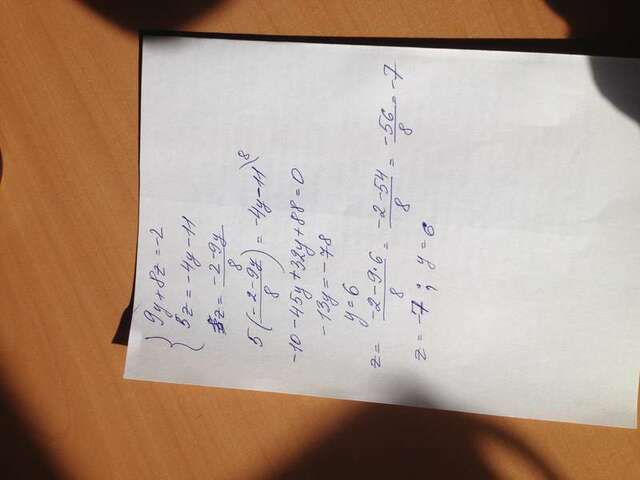 { 9y + 8z = -2
5z = -4y - 11
z = (-2 - 9y)/8
5((-2 - 9y)/8) = -4y - 11 \8
-10 - 45y + 32y + 88 = 0
-13y = -78
y = 6
z = (-2 - 9·6)/8 = (-2 - 54)/8 = (-56)/8 = -7
z = -7; y = 6